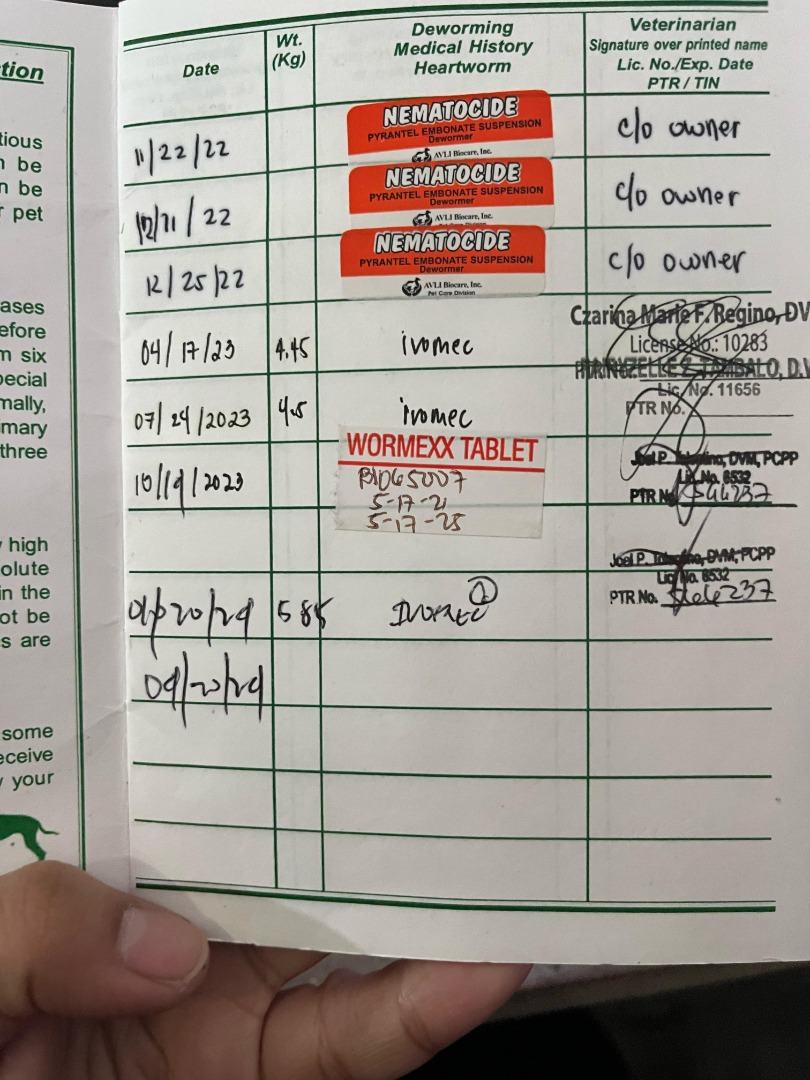 tion
tious
n be
n be
r pet
ases
efore
m six
pecial
mally,
imary
three
y high
olute
in the
ot be
s are
some
eceive
y your
Date
Wt.
(Kg)
Deworming
Medical History
Heartworm
Veterinarian
Signature over printed name
Lic. No./Exp. Date
PTR / TIN
11/22/22
NEMATOCIDE
PYRANTEL EMBONATE SUSPENSION
Dewormer
AVLI Biocare, Inc.
c/o owner
22
NEMATOCIDE
PYRANTEL EMBONATE SUSPENSION
Dewormer
AVLI Biocare, Inc.
c/o owner
12/25/22
NEMATOCIDE
PYRANTEL EMBONATE SUSPENSION
Dewormer
AVLI Biocare, Inc.
Pet Care Division
c/o owner
04/17/23
4.45
ivomec
Czarina Marie F. Regino, DV
License No.: 10283
TAMBALO, D.V
Lic. No. 11656
PTR No.
07/24/2023
4.5
ivomec
10/19/2023
WORMEXX TABLET
5-17-21
5-17-25
Joel P. DVM, PCPP
Lic. No. 6532
PTR N
Joel P. DVM, PCPP
Lic. No. 6532
PTR No.
20/24
5 85
1
20/24